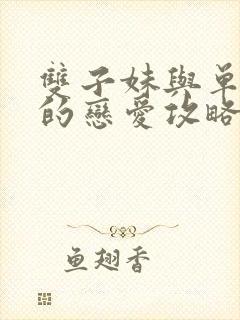 雙子妹與單
的戀愛攻略
鱼翅香